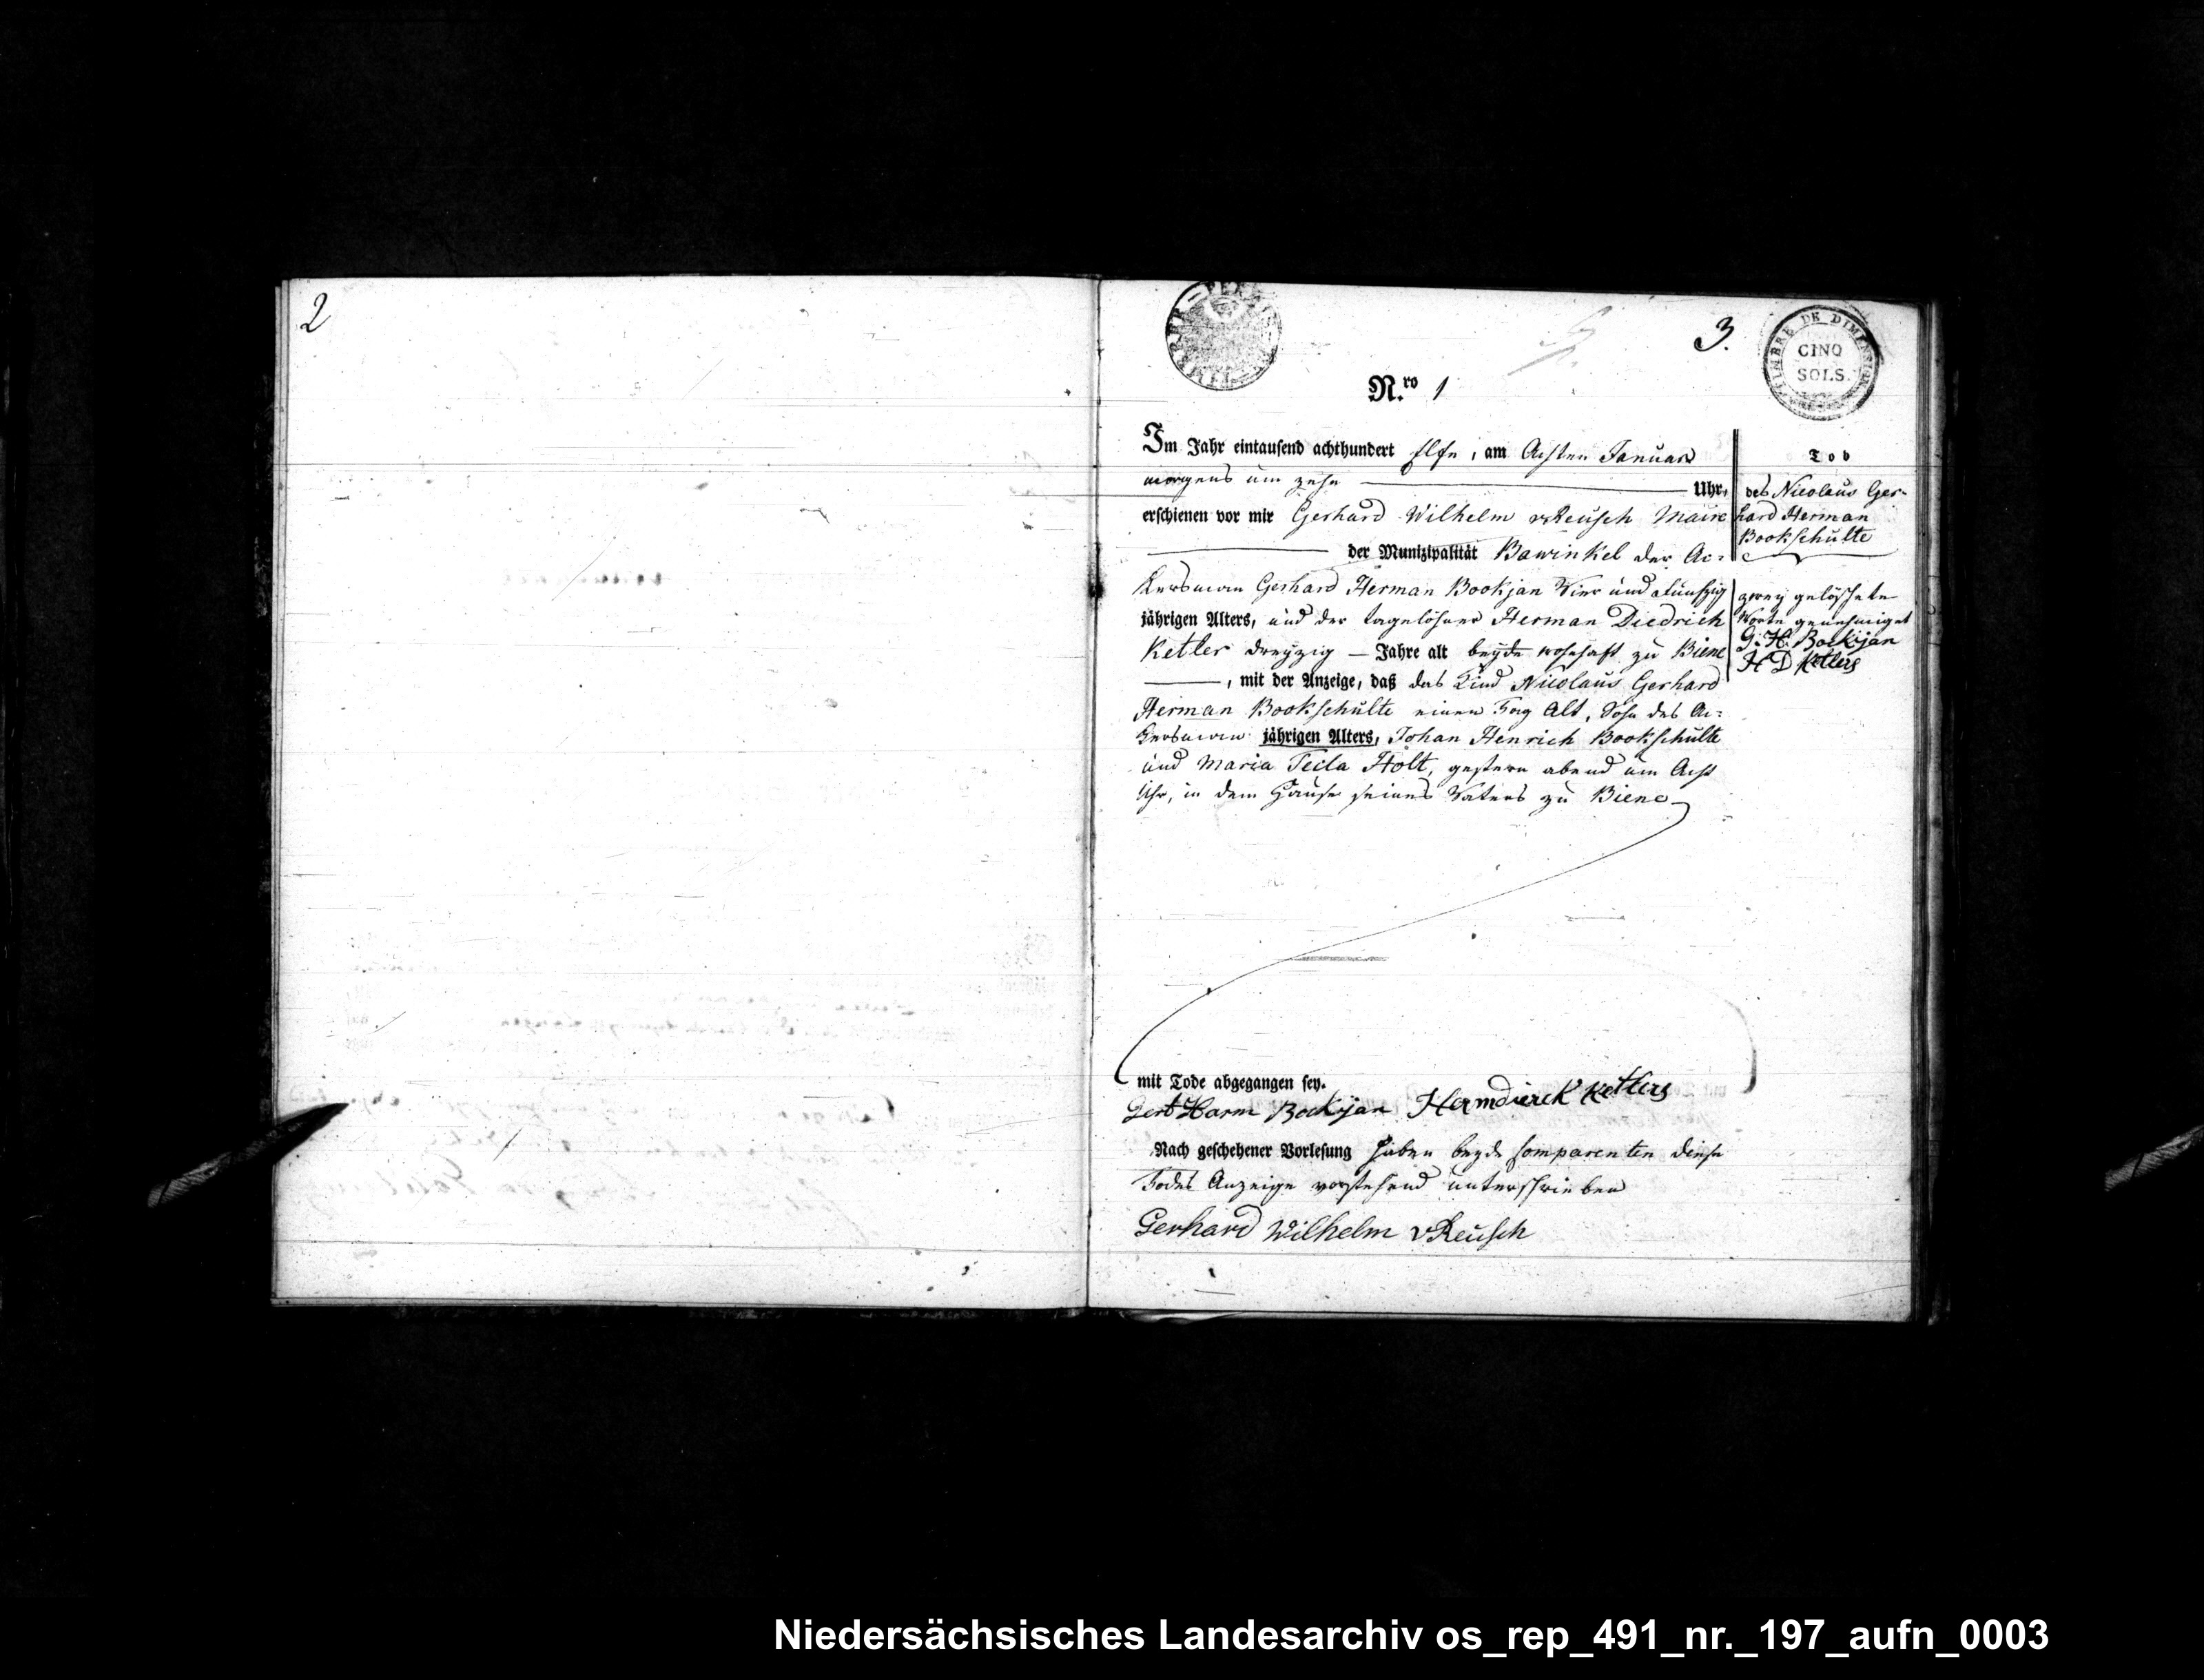 2
3.
TIMBRE DE DIMENSION
CINQ
SOLS.
N.ro 1
Im Jahr eintausend achthundert Elfe, am Achten Januar
morgens um zehn Uhr,
erschienen vor mir Gerhard Wilhelm vReusch Maire
der Munizipalität Bawinkel der Ac-
kersman Gerhard Herman Bookjan Vier und Funfzig
jährigen Alters, und der tagelöhner Herman Diedrich
Ketler dreyzig — Jahre alt beyde wohnhaft zu Biene
, mit der Anzeige, daß das Kind Nicolaus Gerhard
Herman Bookschulte einen Tag Alt, Sohn des Ac-
kersman jährigen Alters, Johan Henrich Bookschulte
und Maria Tecla Holt, gestern abend um Acht
Uhr, in dem Hause seines Vaters zu Biene
mit Tode abgegangen sey.
Gert Harm Bookjan Hermdierck Ketlers
Nach geschehener Vorlesung haben beyde Comparenten diese
Todes Anzeige vorstehend unterschrieben
Gerhard Wilhelm vReusch
Tod
des Nicolaus Ger-
hard Herman
Bookschulte
zwey gelöschete
Worte genehmiget
G. H. Bookjan
H D Ketlers
Niedersächsisches Landesarchiv os_rep_491_nr._197_aufn_0003